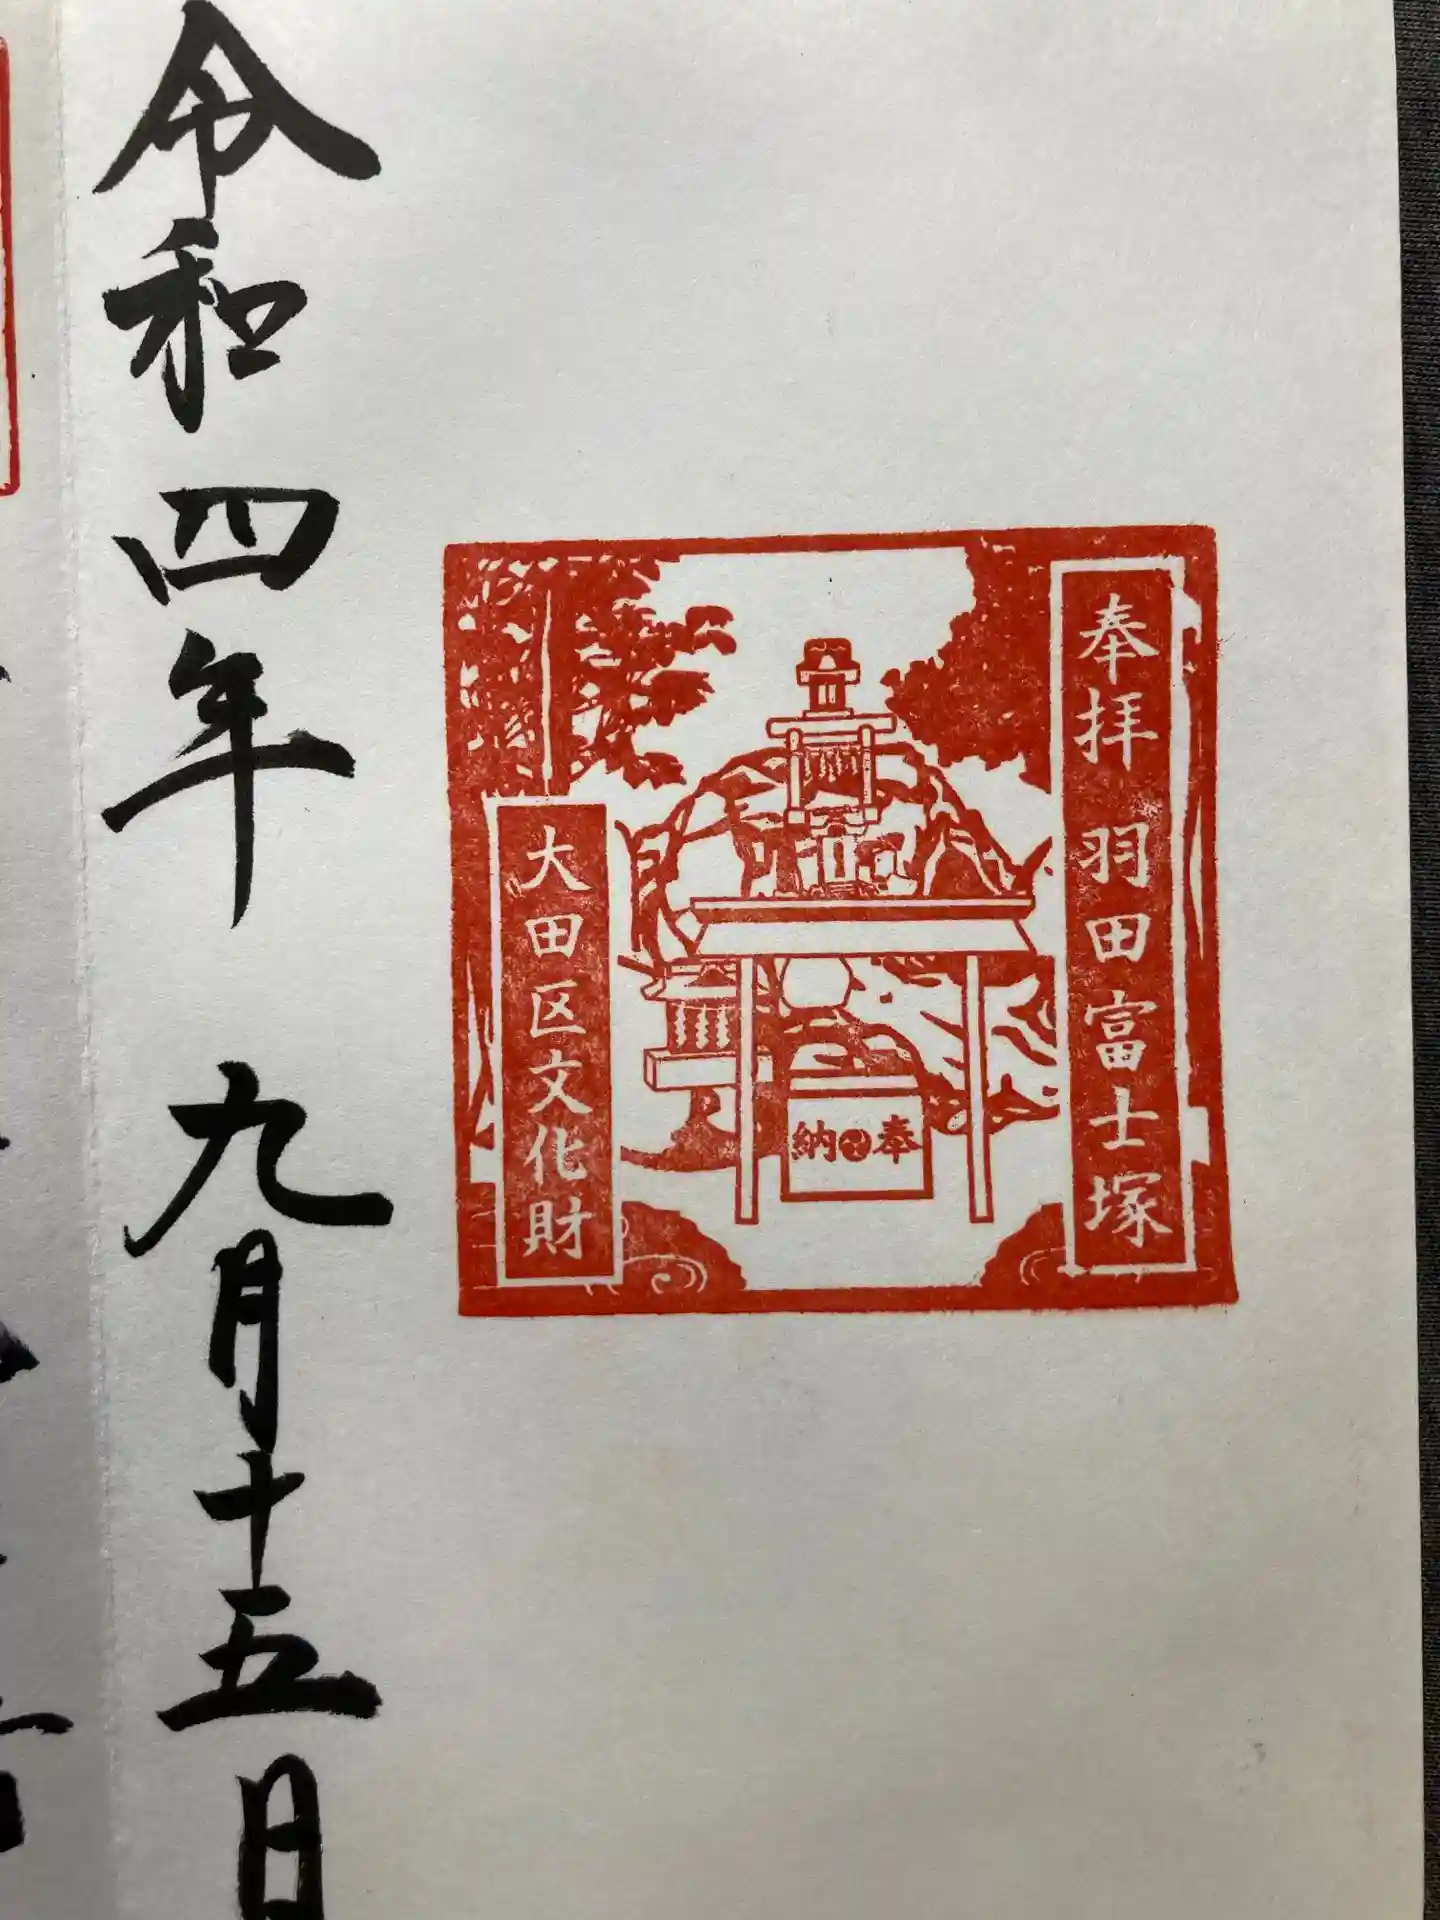 奉拝 羽田富士塚
奉納
大田区文化財
令和四年 九月十五日